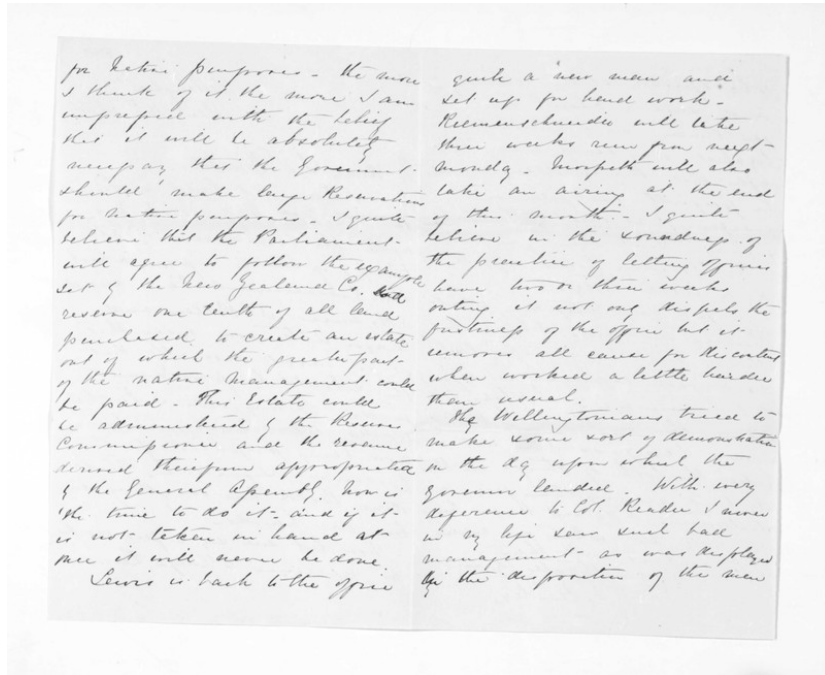 for Native purposes - the more
I think of it the more I am
impressed with the belief
that it will be absolutely
necessary that the Government
should make large Reservations
for Native purposes - I quite
believe that the Parliament
will agree to follow the example
set by the New Zealand Co.
reserve one tenth of all land
purchased to create an estate
out of which the greater part
of the native management could
be paid - This Estate could
be administered by the Reserves
Commissioner and the revenue
derived therefrom appropriated
by the General Assembly. Now is
the time to do it - and if it
is not taken in hand at
once it will never be done.
Lewis is back to the office
quite a "new man" and
set up for hard work -
Riemenschneider will take
three weeks run from next
Monday - Morpeth will also
take an airing at the end
of this month - I quite
believe in the soundness of
the practice of letting officers
have two or three weeks
outing it not only dispels the
fustiness of the office but it
removes all cause for discontent
when worked a little harder
than usual.
The Wellingtonians tried to
make some sort of demonstration
on the day upon which the
Governor landed. With every
deference to Col. Reader I never
in my life saw such bad
management as was displayed
by the disposition of the men